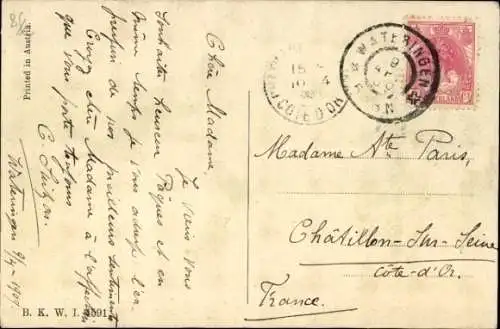 Printed in Austria.
Chère Madame,
Je viens vous
souhaiter heureuse Pâques et en
même temps je vous adresse l'ex-
pression de mes meilleurs sentiments
Croyez chère Madame à l'affection
que vous porte toujours
Wateringen 9/4 - 1909.
B. K. W. I.
WATERINGEN
COTE D'OR
Madame Ate Paris,
Châtillon-sur-Seine
Côte-d'Or.
France.